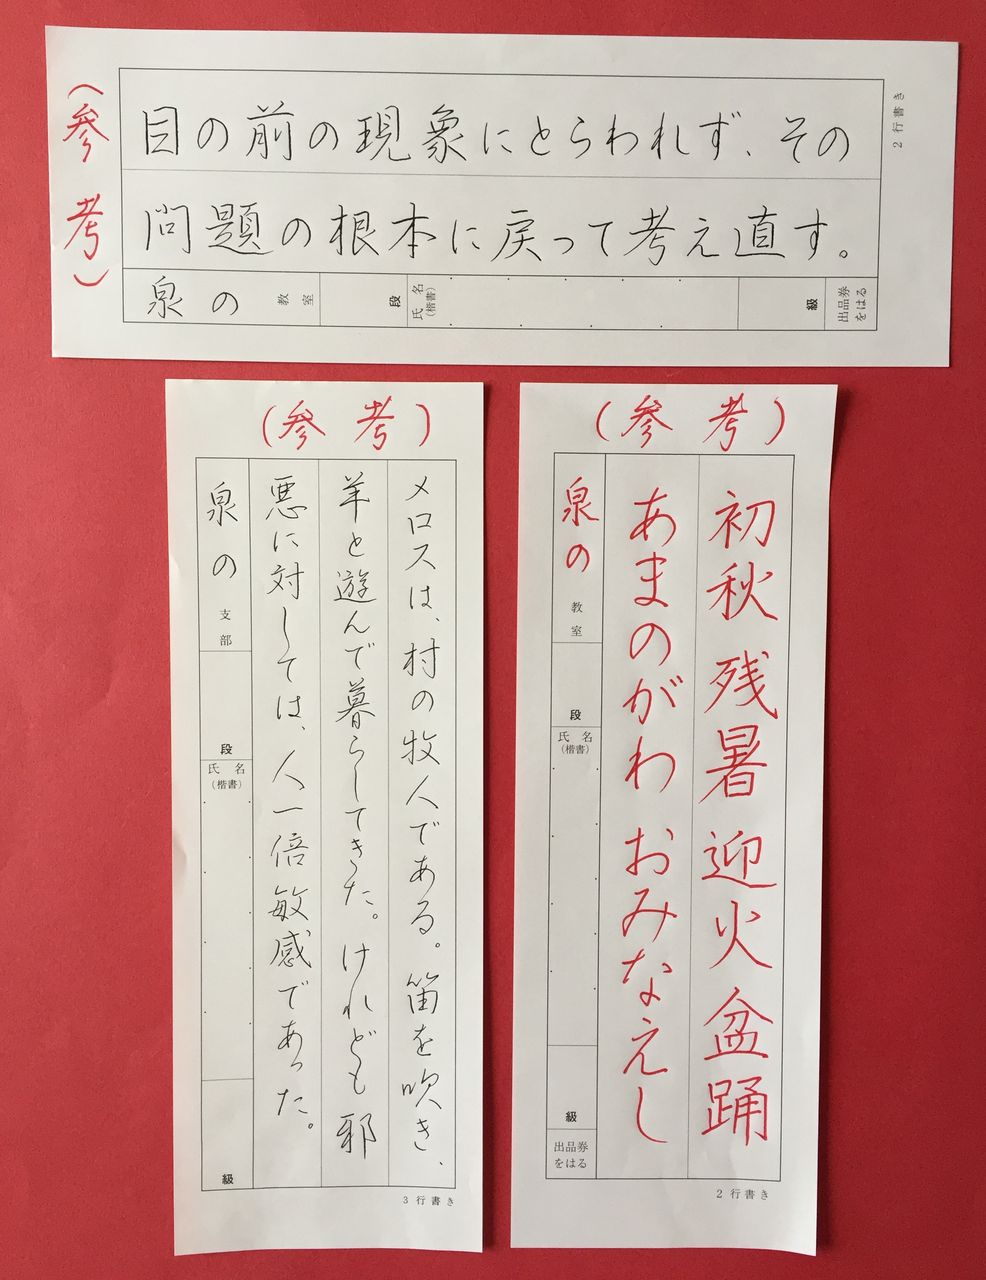 (参考)
目の前の現象にとらわれず、その
問題の根本に戻って考え直す。
泉の 教室 段 氏名(楷書) 級 出品券をはる
2行書き
(参考)
メロスは、村の牧人である。笛を吹き、
羊と遊んで暮らしてきた。けれども邪
悪に対しては、人一倍敏感であった。
泉の 支部 段 氏名(楷書) 級
3行書き
(参考)
初秋 残暑 迎火 盆踊
あまのがわ おみなえし
泉の 教室 段 氏名(楷書) 級 出品券をはる
2行書き